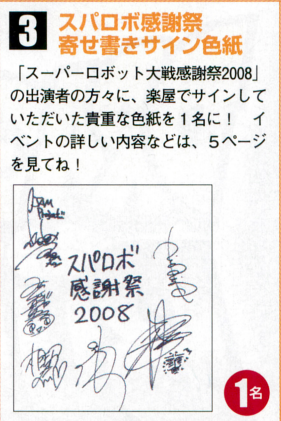 3
スパロボ感謝祭
寄せ書きサイン色紙
「スーパーロボット大戦感謝祭2008」
の出演者の方々に、楽屋でサインして
いただいた貴重な色紙を1名に！ イ
ベントの詳しい内容などは、5ページ
を見てね！
スパロボ
感謝祭
2008
1名